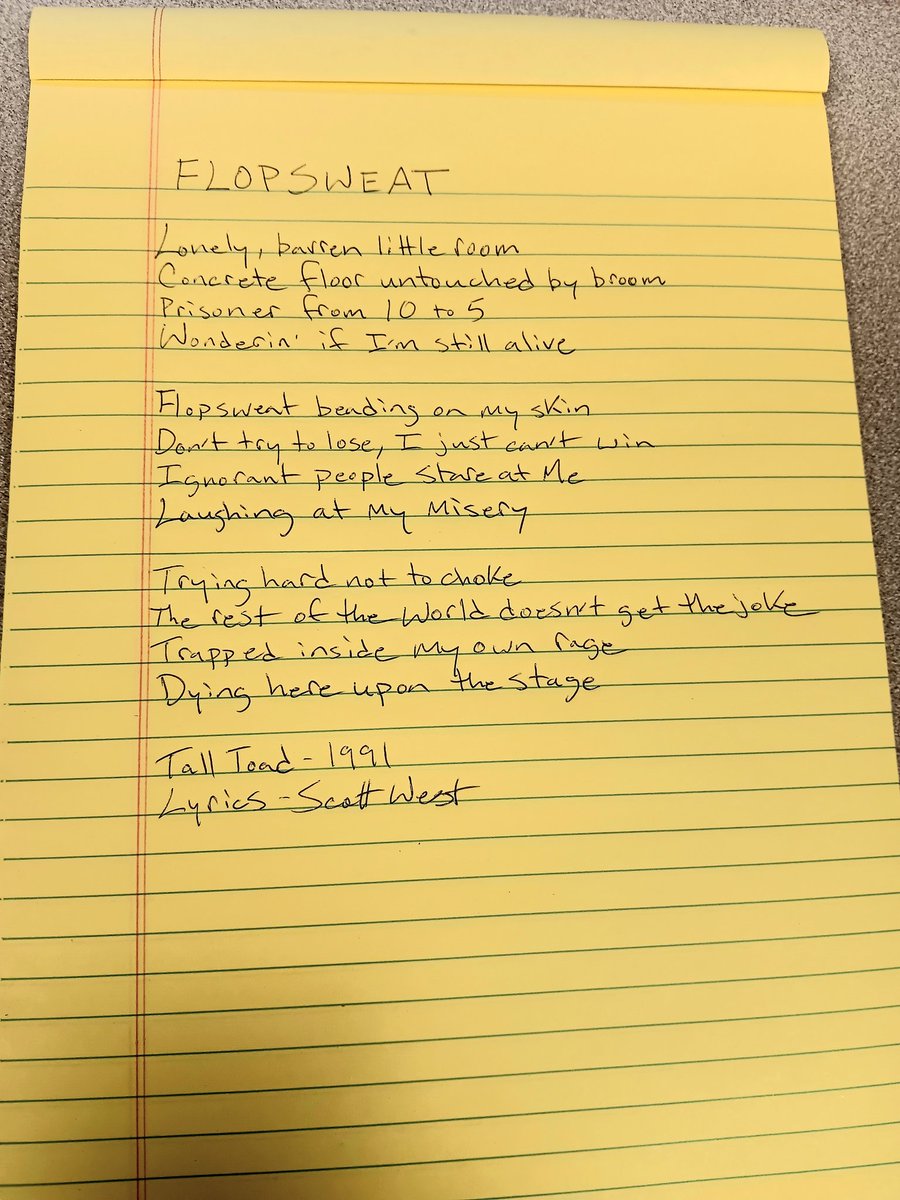 FLOPSWEAT
Lonely, barren little room
Concrete floor untouched by broom
Prisoner from 10 to 5
Wonderin' if I'm still alive
Flopsweat beading on my skin
Don't try to lose, I just can't win
Ignorant people stare at Me
Laughing at My Misery
Trying hard not to choke
The rest of the World doesn't get the joke
Trapped inside My own rage
Dying here upon the stage
Tall Toad - 1991
Lyrics - Scott West